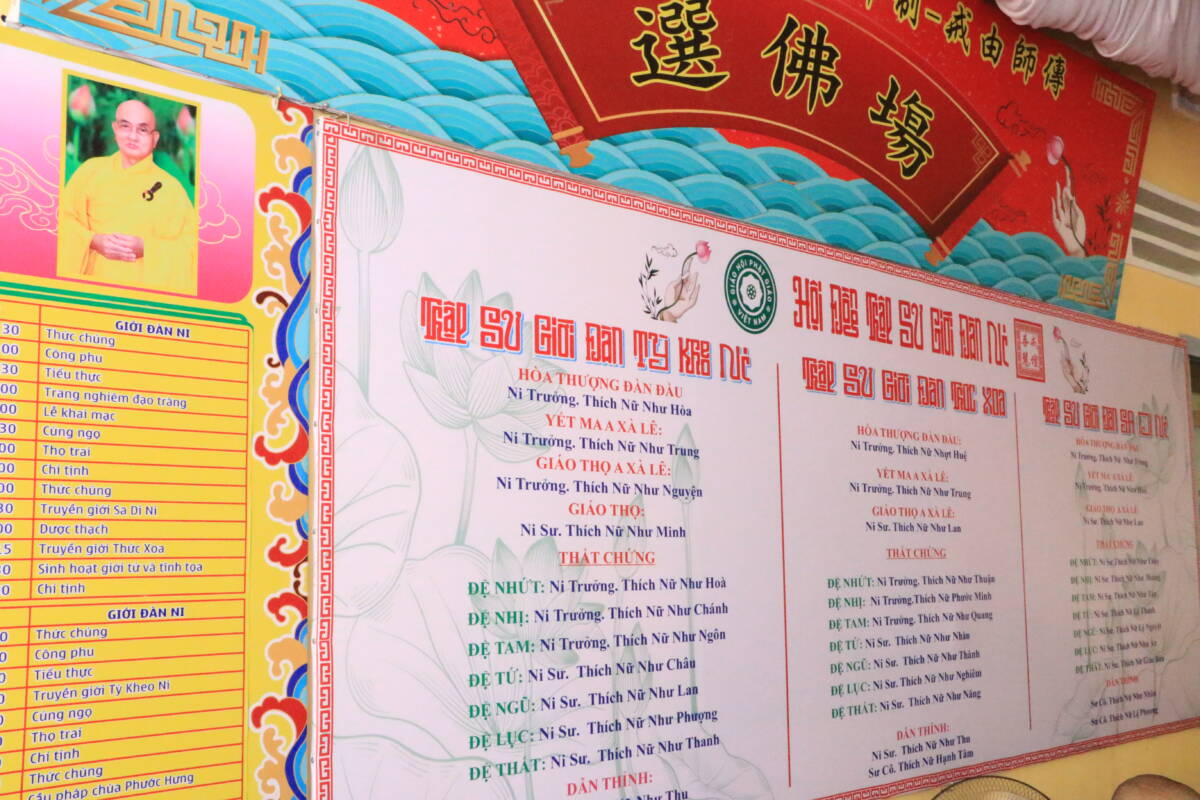 選佛場
戒由師傳
GIỚI ĐÀN NI
30 Thức chúng
00 Công phu
30 Tiểu thực
00 Trang nghiêm đạo tràng
00 Lễ khai mạc
30 Cúng ngọ
00 Thọ trai
00 Chỉ tịnh
00 Thức chúng
30 Truyền giới Sa Di Ni
00 Dược thạch
15 Truyền giới Thức Xoa
Sinh hoạt giới tử và tĩnh tọa
Chỉ tịnh
GIỚI ĐÀN NI
Thức chúng
Công phu
Tiểu thực
Truyền giới Tỳ Kheo Ni
Cúng ngọ
Thọ trai
Chỉ tịnh
Thức chúng
Cầu pháp chùa Phước Hưng
GIÁO HỘI PHẬT GIÁO
VIỆT NAM
Hội Đồng Thập Sư Giới Đàn Ni
Thập Sư Giới Đàn Tỳ Kheo Ni
HÒA THƯỢNG ĐÀN ĐẦU
Ni Trưởng. Thích Nữ Như Hòa
YẾT MA A XÀ LÊ:
Ni Trưởng. Thích Nữ Như Trung
GIÁO THỌ A XÀ LÊ:
Ni Trưởng. Thích Nữ Như Nguyện
GIÁO THỌ:
Ni Sư. Thích Nữ Như Minh
THẤT CHỨNG
ĐỆ NHỨT: Ni Trưởng. Thích Nữ Như Hoà
ĐỆ NHỊ: Ni Trưởng. Thích Nữ Như Chánh
ĐỆ TAM: Ni Trưởng. Thích Nữ Như Ngôn
ĐỆ TỨ: Ni Sư. Thích Nữ Như Châu
ĐỆ NGŨ: Ni Sư. Thích Nữ Như Lan
ĐỆ LỤC: Ni Sư. Thích Nữ Như Phượng
ĐỆ THẤT: Ni Sư. Thích Nữ Như Thanh
DẪN THỈNH:
Thích Nữ Như Thu
Thập Sư Giới Đàn Thức Xoa
HÒA THƯỢNG ĐÀN ĐẦU:
Ni Trưởng. Thích Nữ Nhựt Huệ
YẾT MA A XÀ LÊ:
Ni Trưởng. Thích Nữ Như Trung
GIÁO THỌ A XÀ LÊ:
Ni Sư. Thích Nữ Như Lan
THẤT CHỨNG
ĐỆ NHỨT: Ni Trưởng. Thích Nữ Như Thuận
ĐỆ NHỊ: Ni Trưởng.Thích Nữ Phước Minh
ĐỆ TAM: Ni Trưởng. Thích Nữ Như Quang
ĐỆ TỨ: Ni Sư. Thích Nữ Như Nhàn
ĐỆ NGŨ: Ni Sư. Thích Nữ Như Thành
ĐỆ LỤC: Ni Sư. Thích Nữ Như Nghiêm
ĐỆ THẤT: Ni Sư. Thích Nữ Như Năng
DẪN THỈNH:
Ni Sư. Thích Nữ Như Thu
Sư Cô. Thích Nữ Hạnh Tâm
Thập Sư Giới Đàn Sa Di Ni
HÒA THƯỢNG ĐÀN ĐẦU
Ni Trưởng. Thích Nữ Như
YẾT MA A XÀ LÊ
Ni Trưởng. Thích Nữ Như
GIÁO THỌ A XÀ LÊ
Ni Sư. Thích Nữ Như Lan
THẤT CHỨNG
ĐỆ NHỨT: Ni Sư. Thích Nữ Như
ĐỆ NHỊ: Ni Sư. Thích Nữ Như
ĐỆ TAM: Ni Sư. Thích Nữ Như
ĐỆ TỨ: Ni Sư. Thích Nữ Lệ Thanh
ĐỆ NGŨ: Ni Sư. Thích Nữ Lệ Nguyệt
ĐỆ LỤC: Ni Sư. Thích Nữ Như
ĐỆ THẤT: Ni Sư. Thích Nữ Giác
DẪN THỈNH
Sư Cô. Thích Nữ Như Nhẫn
Sư Cô. Thích Nữ Lệ Phương